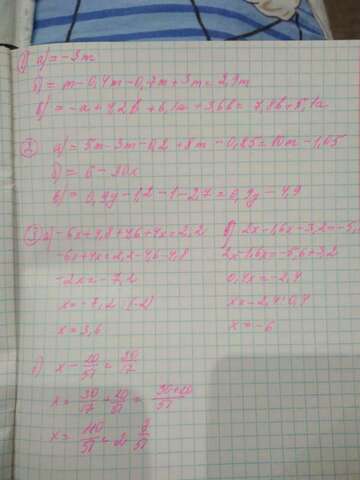 1) а) = -3m
б) = m - 0,4m - 0,7m + 3m = 2,9m
в) = -a + 4,2b + 6,1a + 3,6b = 7,8b + 5,1a
2) а) = 5m - 3m - 0,2 + 8m - 0,85 = 10m - 1,05
б) = 6 -
в) = 0,9y - 1,2 - 1 - 2,7 = 0,9y - 4,9
3) а) -6x + 4,8 + 4,6 + 4x = 2,2
-6x + 4x = 2,2 - 4,6 - 4,8
-2x = -7,2
x = -7,2 : (-2)
x = 3,6
2x - 1,6x - 3,2 =
2x - 1,6x = -5,6 + 3,2
0,4x = -2,4
x = -2,4 : 0,4
x = -6
x - 20/51 = 30/17
x = 30/17 + 20/51 =
x = 110/51 = 2 8/51